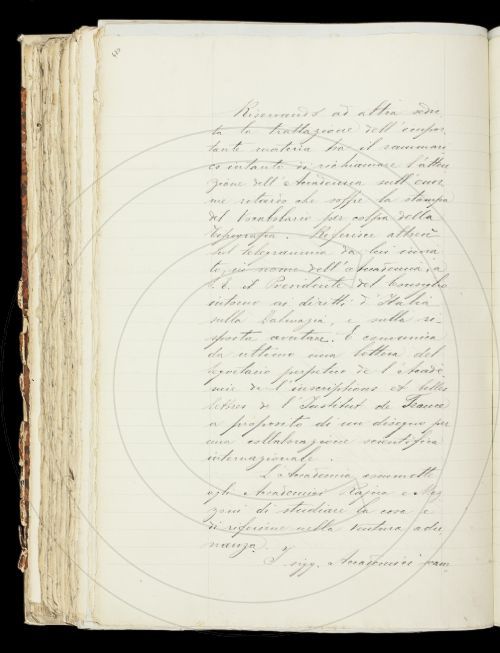 8
Riservando ad altra sedu-
ta la trattazione dell'impor-
tante materia tra il sommari
co intanto di richiamare l'atten
zione dell'Accademia sull'enor-
me ritardo che soffre la stampa
del Vocabolario per colpa della
tipografia. Riferisce altresì
sul telegramma da lui invia
to, in nome dell'Accademia, a
S. E. il Presidente del Consiglio
intorno ai diritti d'Italia
sulla Dalmazia, e sulla ri-
sposta avutane. E comunica
da ultimo una lettera del
segretario perpetuo de l'Acadé-
mie de l'inscriptions et belles
lettres de l'Institut de France
a proposito di un disegno per
una collaborazione scientifica
internazionale.
L'Accademia commette
agli Accademici Rajna e Maz
zoni di studiare la cosa e
di riferirne nella ventura adu-
nanza.
I sigg. Accademici